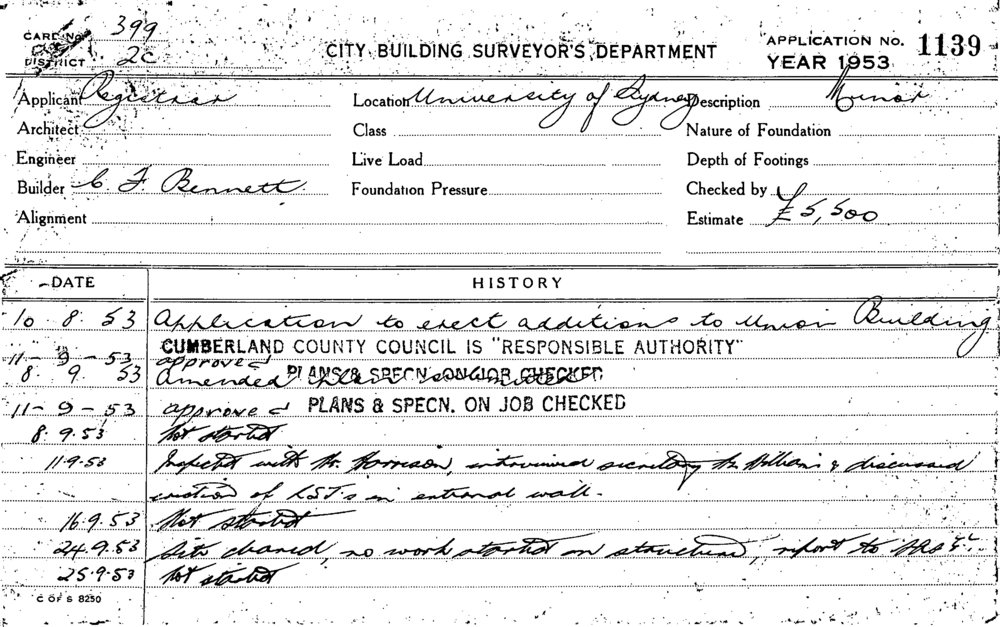 CARD No. 399
DISTRICT 2C
CITY BUILDING SURVEYOR'S DEPARTMENT
APPLICATION No. 1139
YEAR 1953
Applicant Registrar
Location University of Sydney
Description Minor
Architect
Class
Nature of Foundation
Engineer
Live Load
Depth of Footings
Builder C. F. Bennett
Foundation Pressure
Checked by
Alignment
Estimate £5,500
DATE HISTORY
10 8. 53 Application to erect additions to Union Building
CUMBERLAND COUNTY COUNCIL IS "RESPONSIBLE AUTHORITY"
11-9-53 approved
8 9. 53 Amended plan submitted PLANS & SPECN. ON JOB CHECKED
11-9-53 approved PLANS & SPECN. ON JOB CHECKED
8.9.53 Not started
11.9.53 Inspected with Mr. Harrison, interviewed secretary Mr & discussed
erection of R.S.J.s in external wall.
16.9.53 Not started
24.9.53 Site cleared, no work started on structure, report to
25.9.53 Not started
C OF S 8250